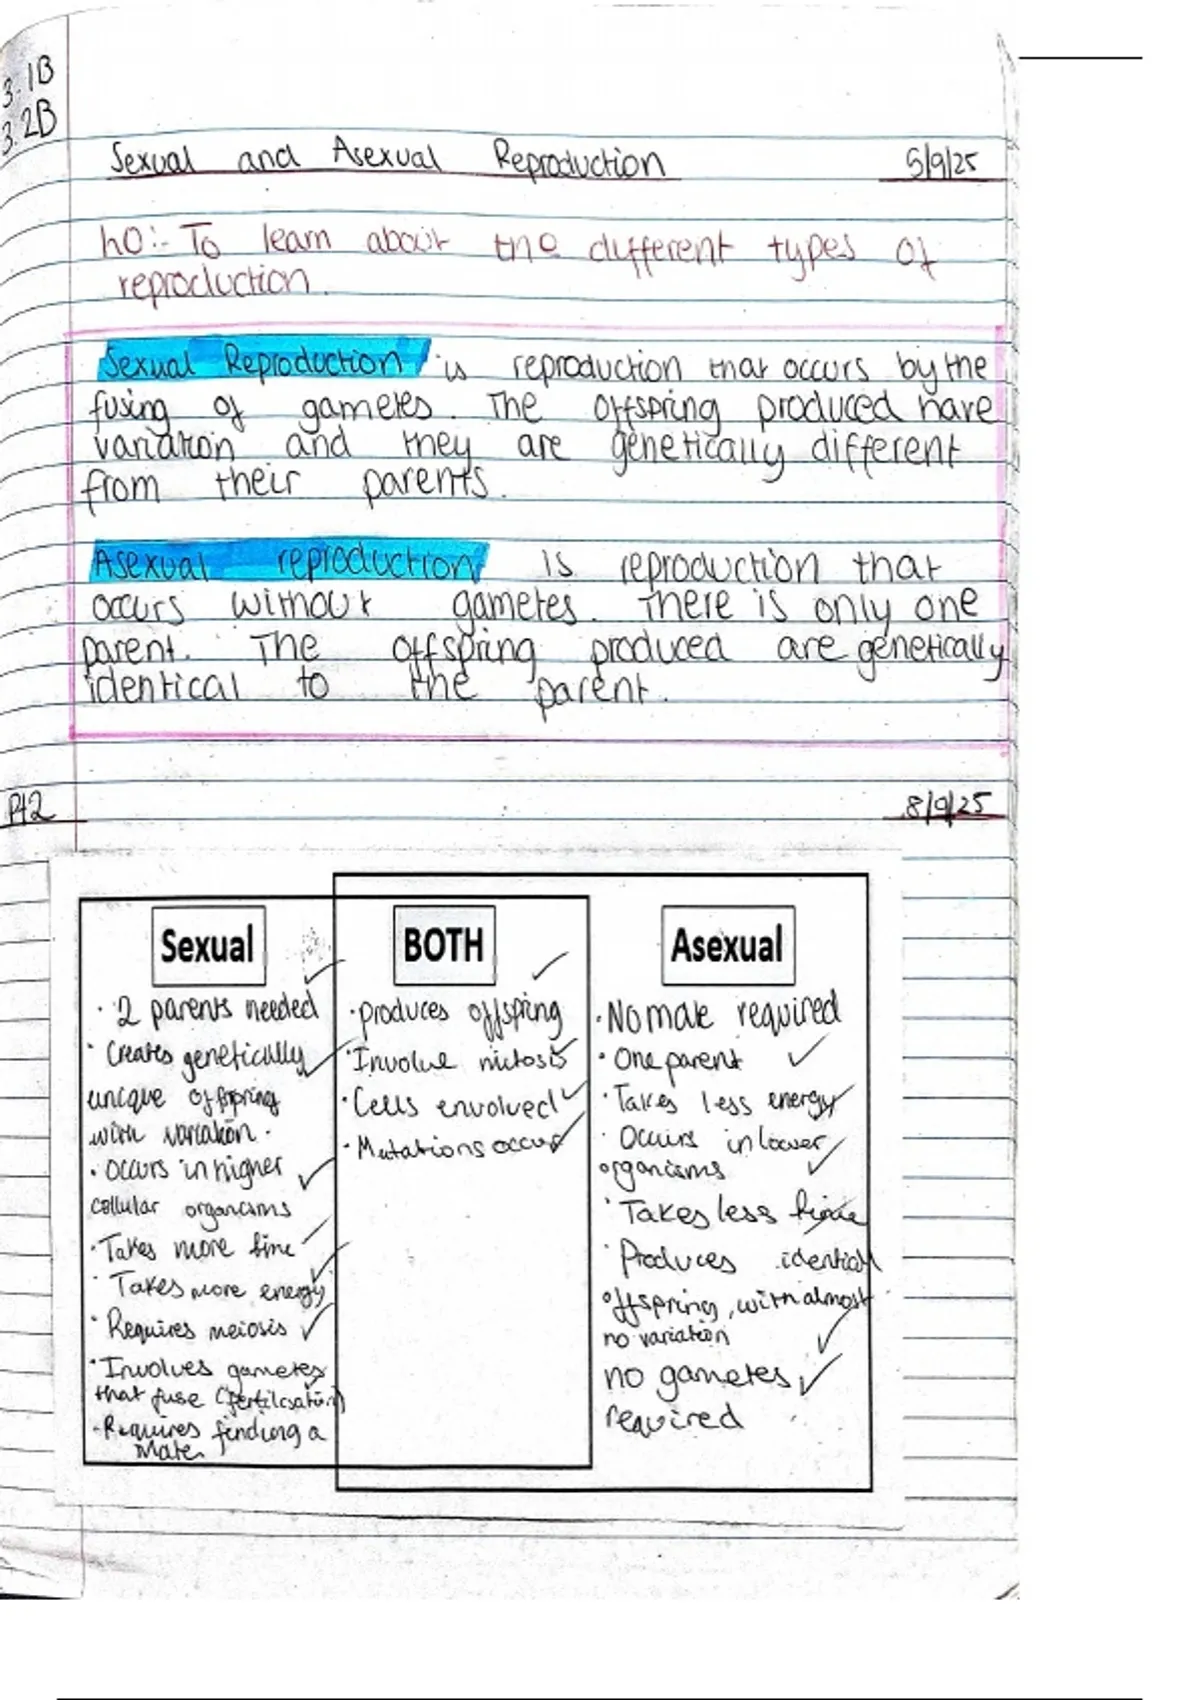 3.1B
3.2B
Sexual and Asexual Reproduction 5/9/25
LO:- To learn about the different types of
reproduction.
Sexual Reproduction is reproduction that occurs by the
fusing of gametes. The offspring produced have
variation and they are genetically different
from their parents.
Asexual reproduction is reproduction that
occurs without gametes. There is only one
parent. The offspring produced are genetically
identical to the parent.
Pt2 8/9/25
Sexual
· 2 parents needed
· Creates genetically
unique offspring
with variation.
· Occurs in higher
cellular organisms
· Takes more time
· Takes more energy
· Requires meiosis
· Involves gametes
that fuse (fertilisation)
· Requires finding a
mate.
BOTH
· produces offspring
· Involve mitosis
· Cells envolved
· Mutations occur
Asexual
· No mate required
· One parent
· Takes less energy
· Occurs in lower
organisms
· Takes less time
· Produces identical
offspring, with almost
no variation
no gametes
required